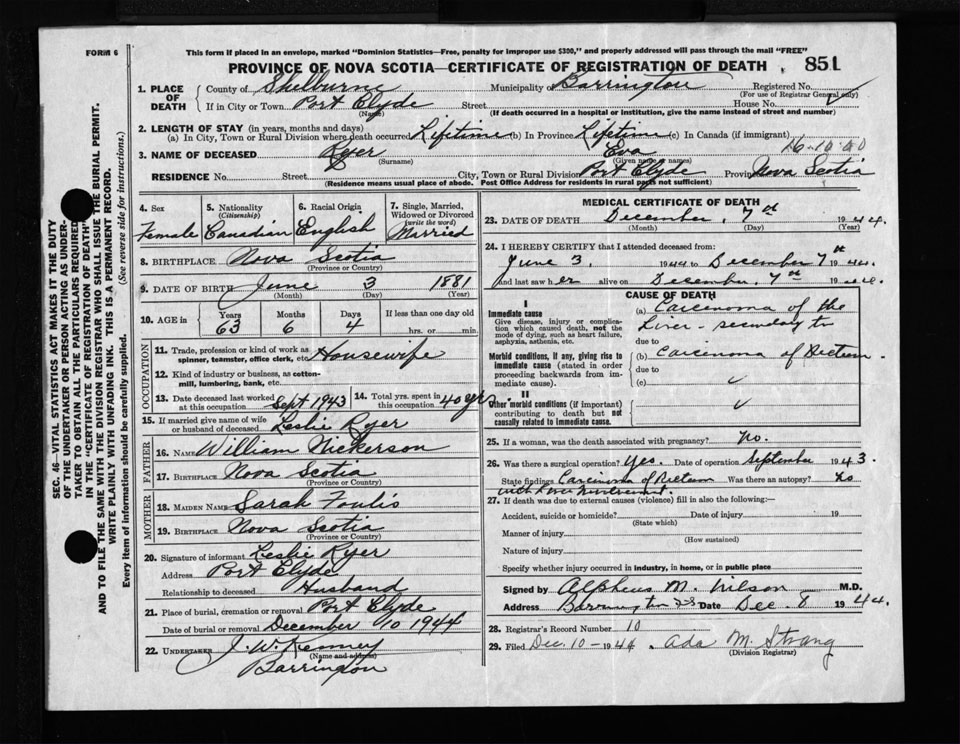 FORM 6
This form if placed in an envelope, marked "Dominion Statistics—Free, penalty for improper use $300," and properly addressed will pass through the mail "FREE"
PROVINCE OF NOVA SCOTIA—CERTIFICATE OF REGISTRATION OF DEATH 851
1. PLACE OF DEATH County of Shelburne Municipality of Barrington Registered No.
(For use of Registrar General only)
If in City or Town Port Clyde Street House No.
(Name) (If death occurred in a hospital or institution, give the name instead of street and number)
2. LENGTH OF STAY (in years, months and days)
(a) In City, Town or Rural Division where death occurred Lifetime (b) In Province Lifetime (c) In Canada (if immigrant)
3. NAME OF DECEASED Ryer Eva
(Surname) (Given name or names)
RESIDENCE No. Street City, Town or Rural Division Port Clyde Province Nova Scotia
(Residence means usual place of abode. Post Office Address for residents in rural parts not sufficient)
4. Sex 5. Nationality (Citizenship) 6. Racial Origin 7. Single, Married, Widowed or Divorced (write the word)
Female Canadian English Married
8. BIRTHPLACE Nova Scotia
(Province or Country)
9. DATE OF BIRTH June 3 1881
(Month) (Day) (Year)
10. AGE in Years Months Days If less than one day old
63 6 4 hrs. or min.
OCCUPATION
11. Trade, profession or kind of work as spinner, teamster, office clerk, etc. Housewife
12. Kind of industry or business, as cotton-mill, lumbering, bank, etc.
13. Date deceased last worked at this occupation Sept 1943 14. Total yrs. spent in this occupation 40 yrs.
15. If married give name of wife or husband of deceased Leslie Ryer
FATHER
16. NAME William Nickerson
17. BIRTHPLACE Nova Scotia
(Province or Country)
MOTHER
18. MAIDEN NAME Sarah Foulis
19. BIRTHPLACE Nova Scotia
(Province or Country)
20. Signature of informant Leslie Ryer
Address Port Clyde
Relationship to deceased Husband
21. Place of burial, cremation or removal Port Clyde
Date of burial or removal December 10 1944
22. UNDERTAKER J. W. Kenney
(Name and address)
Barrington
MEDICAL CERTIFICATE OF DEATH
23. DATE OF DEATH December, 7th 1944.
(Month) (Day) (Year)
24. I HEREBY CERTIFY that I attended deceased from:
June 3, 1944 to December 7th 1944.
and last saw her alive on December, 7th 1944.
CAUSE OF DEATH
I
Immediate cause
Give disease, injury or complication which caused death, not the mode of dying, such as heart failure, asphyxia, asthenia, etc.
(a) Carcinoma of the
Liver - secondary to
due to
Morbid conditions, if any, giving rise to immediate cause (stated in order proceeding backwards from immediate cause).
(b) Carcinoma of Rectum.
due to
(c)
II
Other morbid conditions (if important) contributing to death but not causally related to immediate cause.
25. If a woman, was the death associated with pregnancy? no.
26. Was there a surgical operation? Yes. Date of operation September 1943.
State findings Carcinoma of Rectum Was there an autopsy? No
with Liver involvement.
27. If death was due to external causes (violence) fill in also the following:—
Accident, suicide or homicide? Date of injury 19
(State which)
Manner of injury
(How sustained)
Nature of injury
Specify whether injury occurred in industry, in home, or in public place
Signed by Alpheus M. Wilson M.D.
Address Barrington Date Dec. 8 1944.
28. Registrar's Record Number 10
29. Filed Dec. 10 - 1944 . Ada M. Strang
(Division Registrar)
SEC. 46—VITAL STATISTICS ACT MAKES IT THE DUTY
OF THE UNDERTAKER OR PERSON ACTING AS UNDER-
TAKER TO OBTAIN ALL THE PARTICULARS REQUIRED
IN THE "CERTIFICATE OF REGISTRATION OF DEATH"
AND TO FILE THE SAME WITH THE DIVISION REGISTRAR WHO SHALL ISSUE THE BURIAL PERMIT.
WRITE PLAINLY WITH UNFADING INK. THIS IS A PERMANENT RECORD.
Every item of information should be carefully supplied. (See reverse side for instructions.)